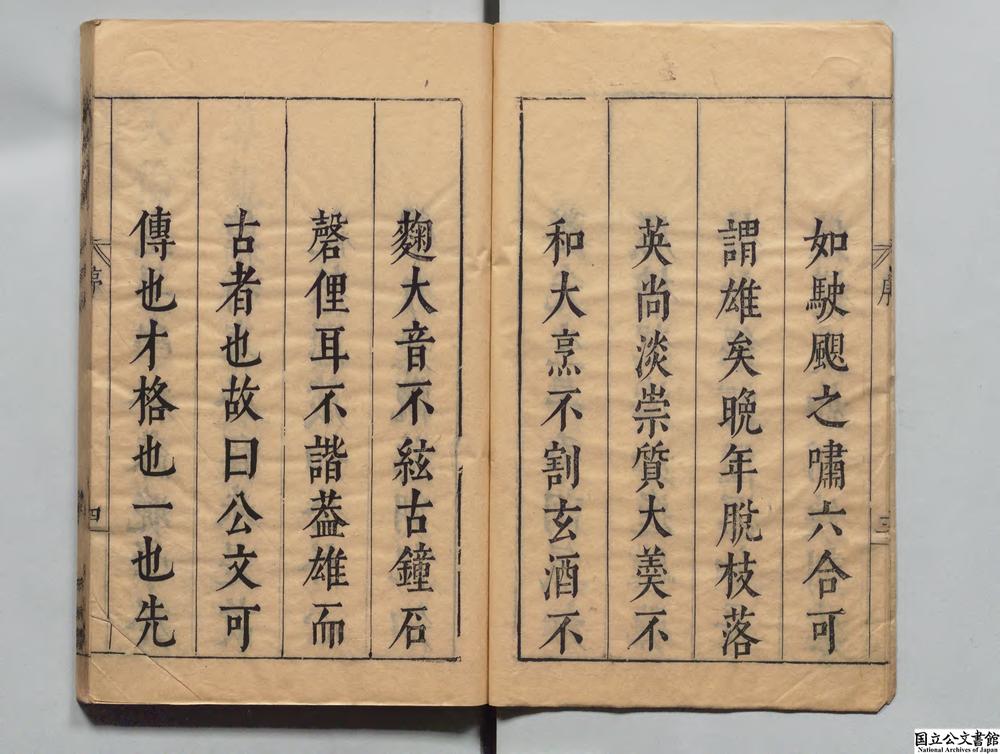 如駛颶之嘯六合可
謂雄矣晚年脫枝落
英尚淡崇質大羹不
和大烹不割玄酒不
麴大音不絃古鐘石
磬俚耳不諧葢雄而
古者也故曰公文可
傳也才格也一也先
序
三
序
四
国立公文書館
National Archives of Japan